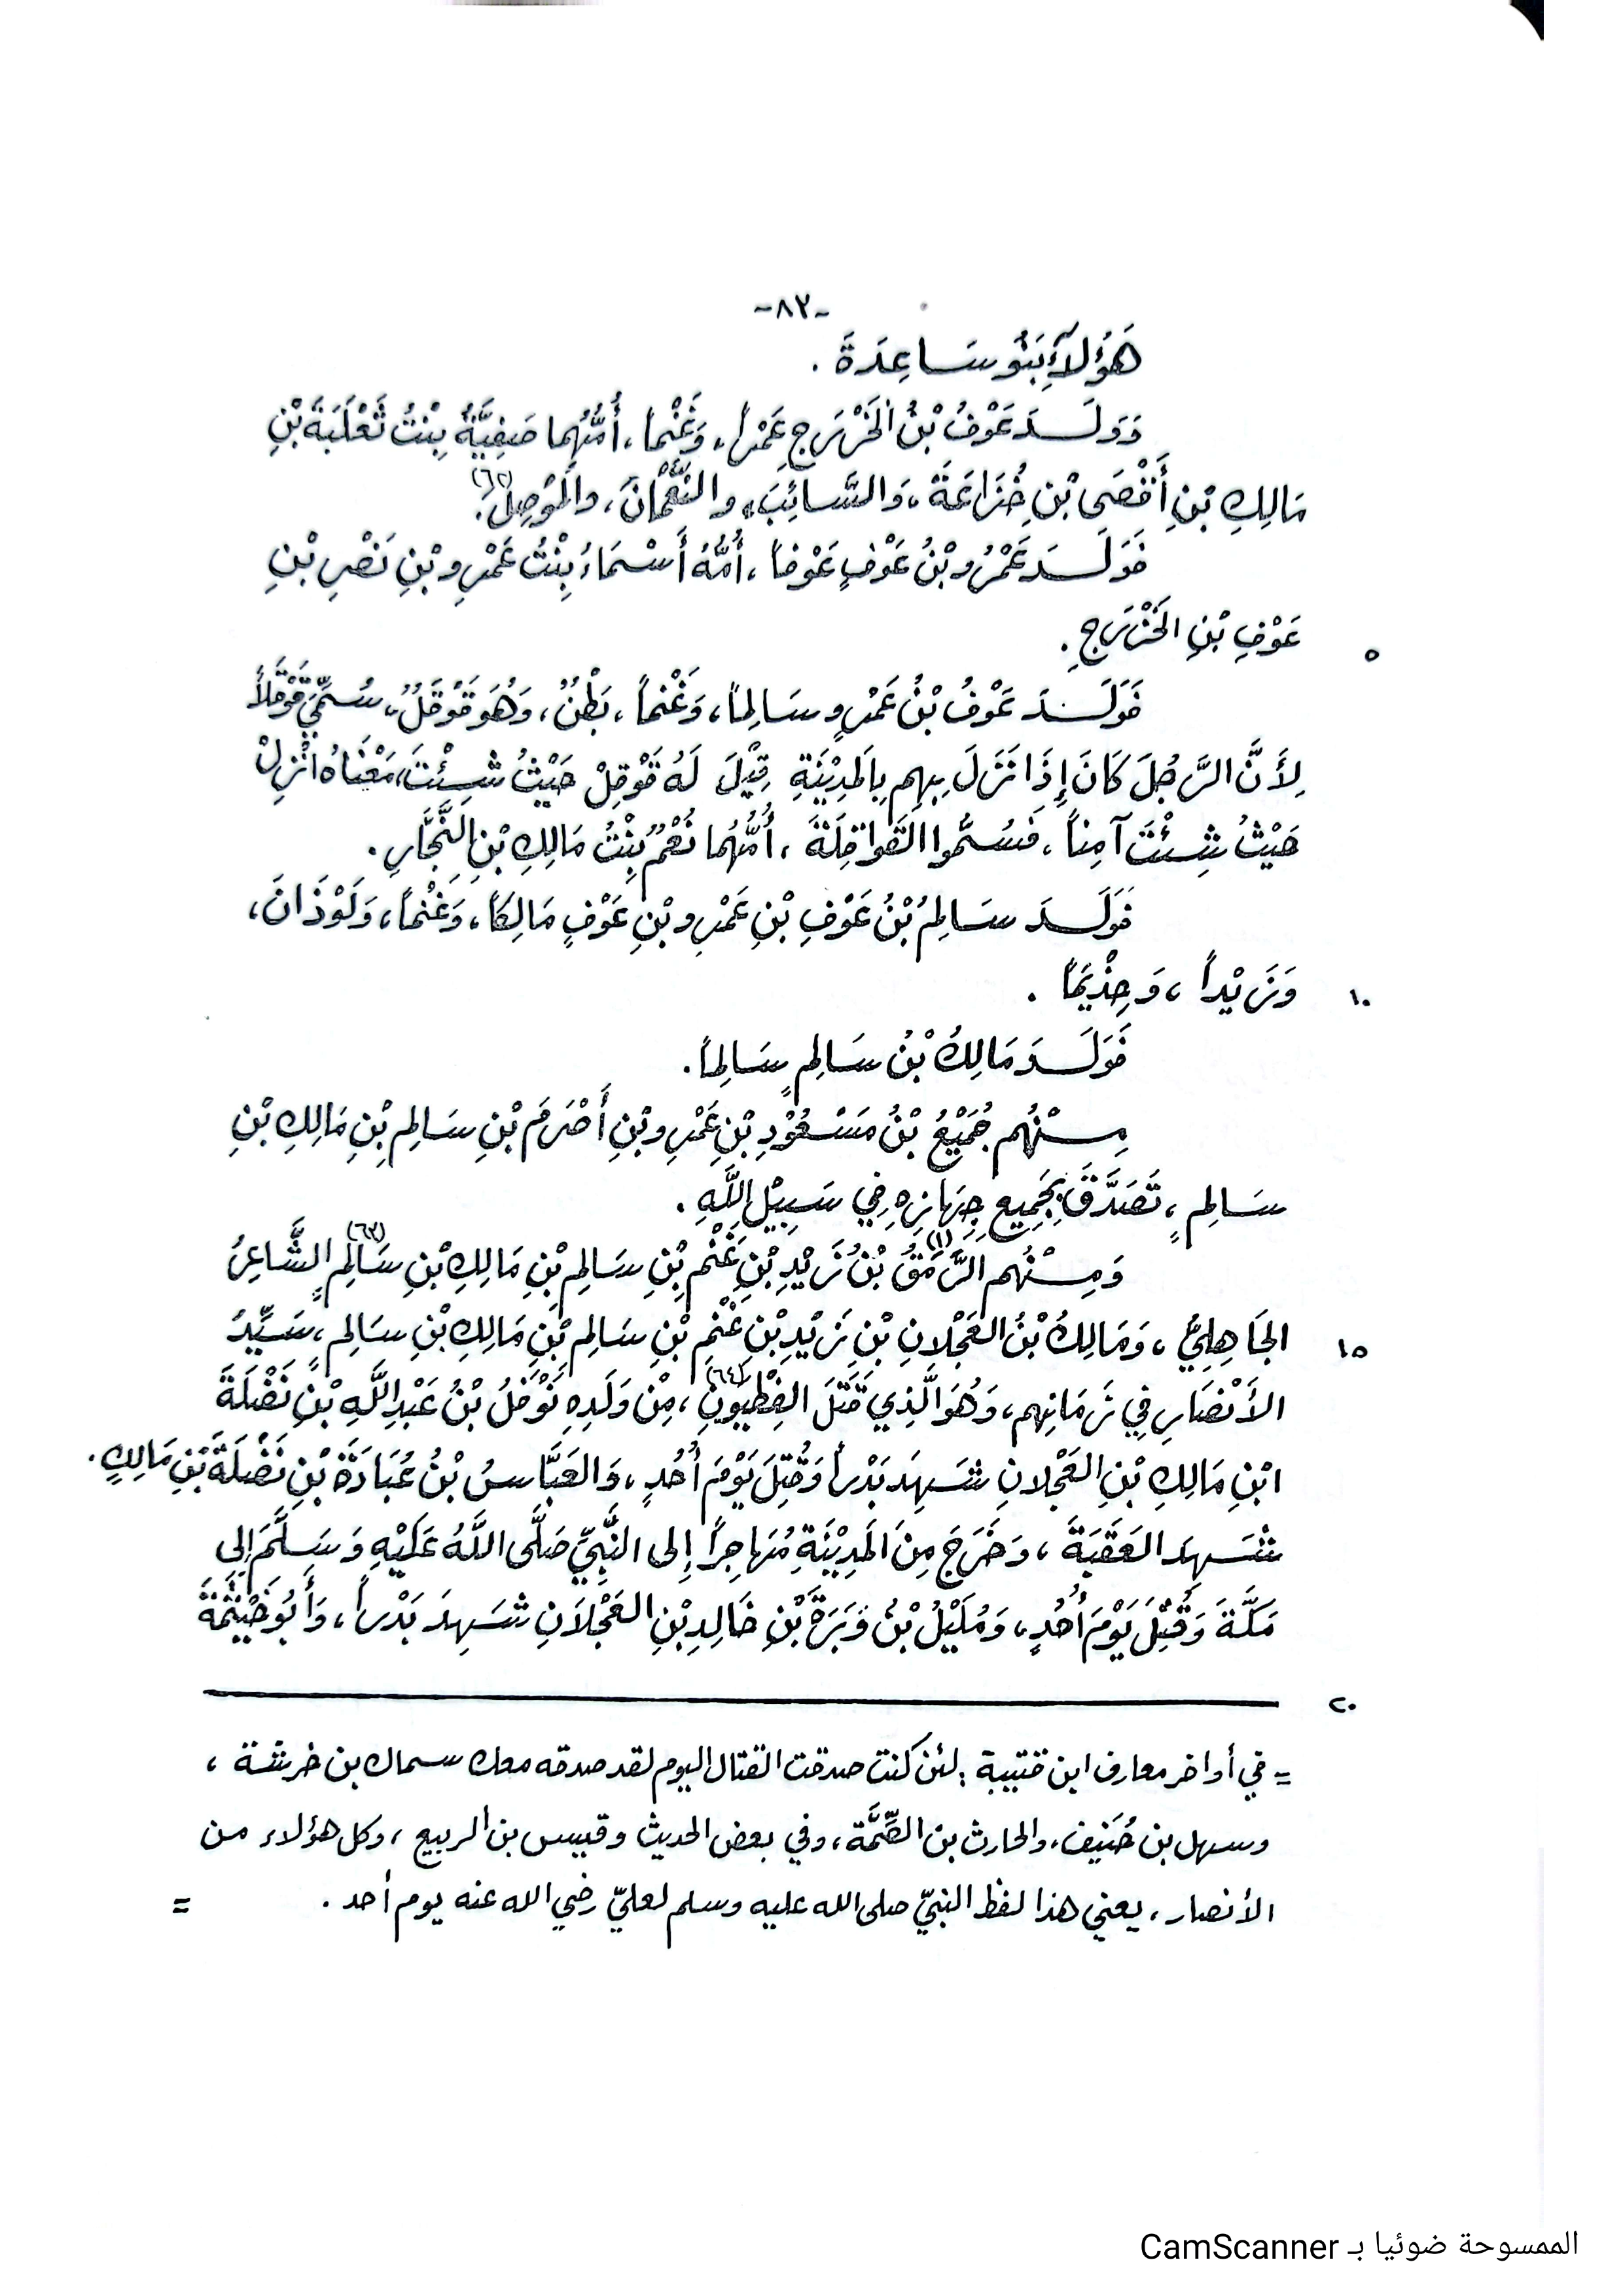 -٨٢-
هَؤُلَاءِ بَنُو سَاعِدَةَ .
وَوَلَدَ عَوْفُ بْنُ الْخَزْرَجِ عَمْراً، وَغَنْماً، أُمُّهُما صَفِيَّةُ بِنْتُ ثَعْلَبَةَ بْنِ
مَالِكِ بْنِ أَفْصَى بْنِ خُزَاعَةَ، وَالسَّائِبَ، والنُّعْمَانَ، والْمَوْصِلَ.(٦٢)
فَوَلَدَ عَمْرُو بْنُ عَوْفٍ عَوْفاً، أُمُّهُ أَسْمَاءُ بِنْتُ عَمْرِو بْنِ نَصْرِ بْنِ
عَوْفِ بْنِ الخَزْرَجِ. ٥
فَوَلَدَ عَوْفُ بْنُ عَمْرٍو سَالِماً، وَغَنْماً، بَطْنٌ، وَهُوَ قَوْقَلٌ، سُمِّيَ قَوْقَلاً
لِأَنَّ الرَّجُلَ كَانَ إِذَا نَزَلَ بِهِم بِالمَدِيْنَةِ قِيْلَ لَهُ قَوْقِلْ حَيْثُ شِئْتَ، مَعْنَاهُ انْزِلْ
حَيْثُ شِئْتَ آمِناً، فَسُمُّوا القَوَاقِلَةَ، أُمُّهُما نُعْمٌ بِنْتُ مَالِكِ بْنِ النَّجَّارِ.
فَوَلَدَ سَالِمُ بْنُ عَوْفِ بْنِ عَمْرِو بْنِ عَوْفٍ مَالِكاً، وَغَنْماً، وَلَوْذَانَ،
وَزَيْداً، وَحِذْيَماً . ١٠
فَوَلَدَ مَالِكُ بْنُ سَالِمٍ سَالِماً.
مِنْهُم جُمَيْعُ بْنُ مَسْعُوْدِ بْنِ عَمْرِو بْنِ أَصْرَمَ بْنِ سَالِمِ بْنِ مَالِكِ بْنِ
سَالِمٍ، تَصَدَّقَ بِجَمِيعِ جِهَازِهِ فِي سَبِيْلِ اللَّهِ .
وَمِنْهُم الرَّمَقُ(١) بْنُ زَيْدِ بْنِ غَنْمِ بْنِ سَالِمِ بْنِ مَالِكِ بْنِ سَالِمٍ(٦٣) الشَّاعِرُ
الجَاهِلِيُّ، وَمَالِكُ بْنُ العَجْلانِ بْنِ زَيْدِ بْنِ غَنْمِ بْنِ سَالِمِ بْنِ مَالِكِ بْنِ سَالِمٍ، سَيِّدُ ١٥
الأَنْصَارِ فِي زَمَانِهِم، وَهُوَ الَّذِي قَتَلَ الفِطْيَوْنَ(٦٤)، مِنْ وَلَدِهِ نَوْفَلُ بْنُ عَبْدِ اللَّهِ بْنِ نَضْلَةَ
ابْنِ مَالِكِ بْنِ العَجْلانِ شَهِدَ بَدْراً وَقُتِلَ يَوْمَ أُحُدٍ، وَالعَبَّاسُ بْنُ عُبَادَةَ بْنِ نَضْلَةَ بْنِ مَالِكٍ.
شَهِدَ العَقَبَةَ، وَخَرَجَ مِنَ المَدِيْنَةِ مُهَاجِراً إِلى النَّبِيِّ صَلَّى اللَّهُ عَلَيْهِ وَسَلَّمَ إِلى
مَكَّةَ وَقُتِلَ يَوْمَ أُحُدٍ، وَمُلَيْلُ بْنُ وَبَرَةَ بْنِ خَالِدِ بْنِ العَجْلَانِ شَهِدَ بَدْراً، وَأَبُو خَيْثَمَةَ
٢٠
= في أواخر معارف ابن قتيبة : لئن كنت صدقت القتال اليوم لقد صدقه معك سماك بن خرشة ،
وسهل بن حُنَيف، والحارث بن الصِّمَّة، وفي بعض الحديث وقيس بن الربيع ، وكل هؤلاء من
الأنصار، يعني هذا لفظ النبيّ صلى الله عليه وسلم لعليّ رضي الله عنه يوم أحد . =
الممسوحة ضوئيا بـ CamScanner